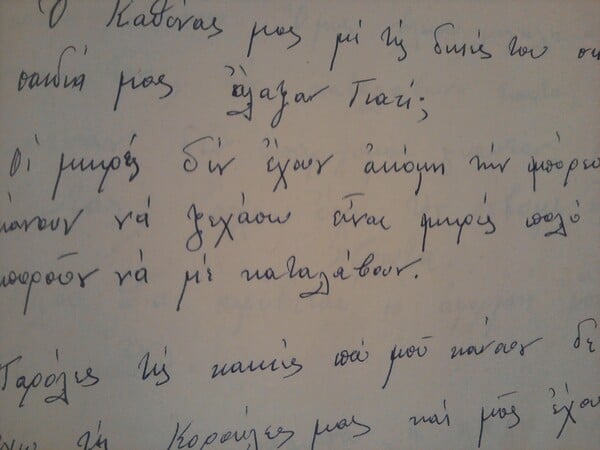 Ὁ Καθένας μας μέ τίς δικιές του
παιδιά μας ἄλαξαν Γιατί;
Οἱ μικρές δέν ἔχουν ἀκόμη τήν
κάνουν νά ξεχάσω εἶναι μικρές πολύ
μποροῦν νά μέ καταλάβουν.
Παρόλες τίς κακίες πού μοῦ κάνουν δέ
τίς Κοροῦλες μας καί μᾶς ἔχου